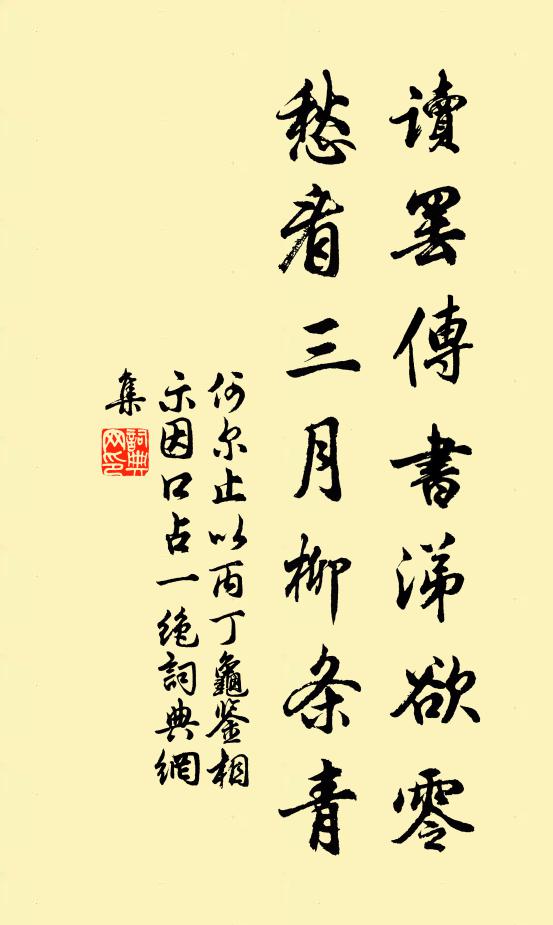 讀罷傳書涕欲零
愁看三月柳条青
何尔止以丙丁龜鉴相
示因口占一绝詞典網
集
詞典
网印